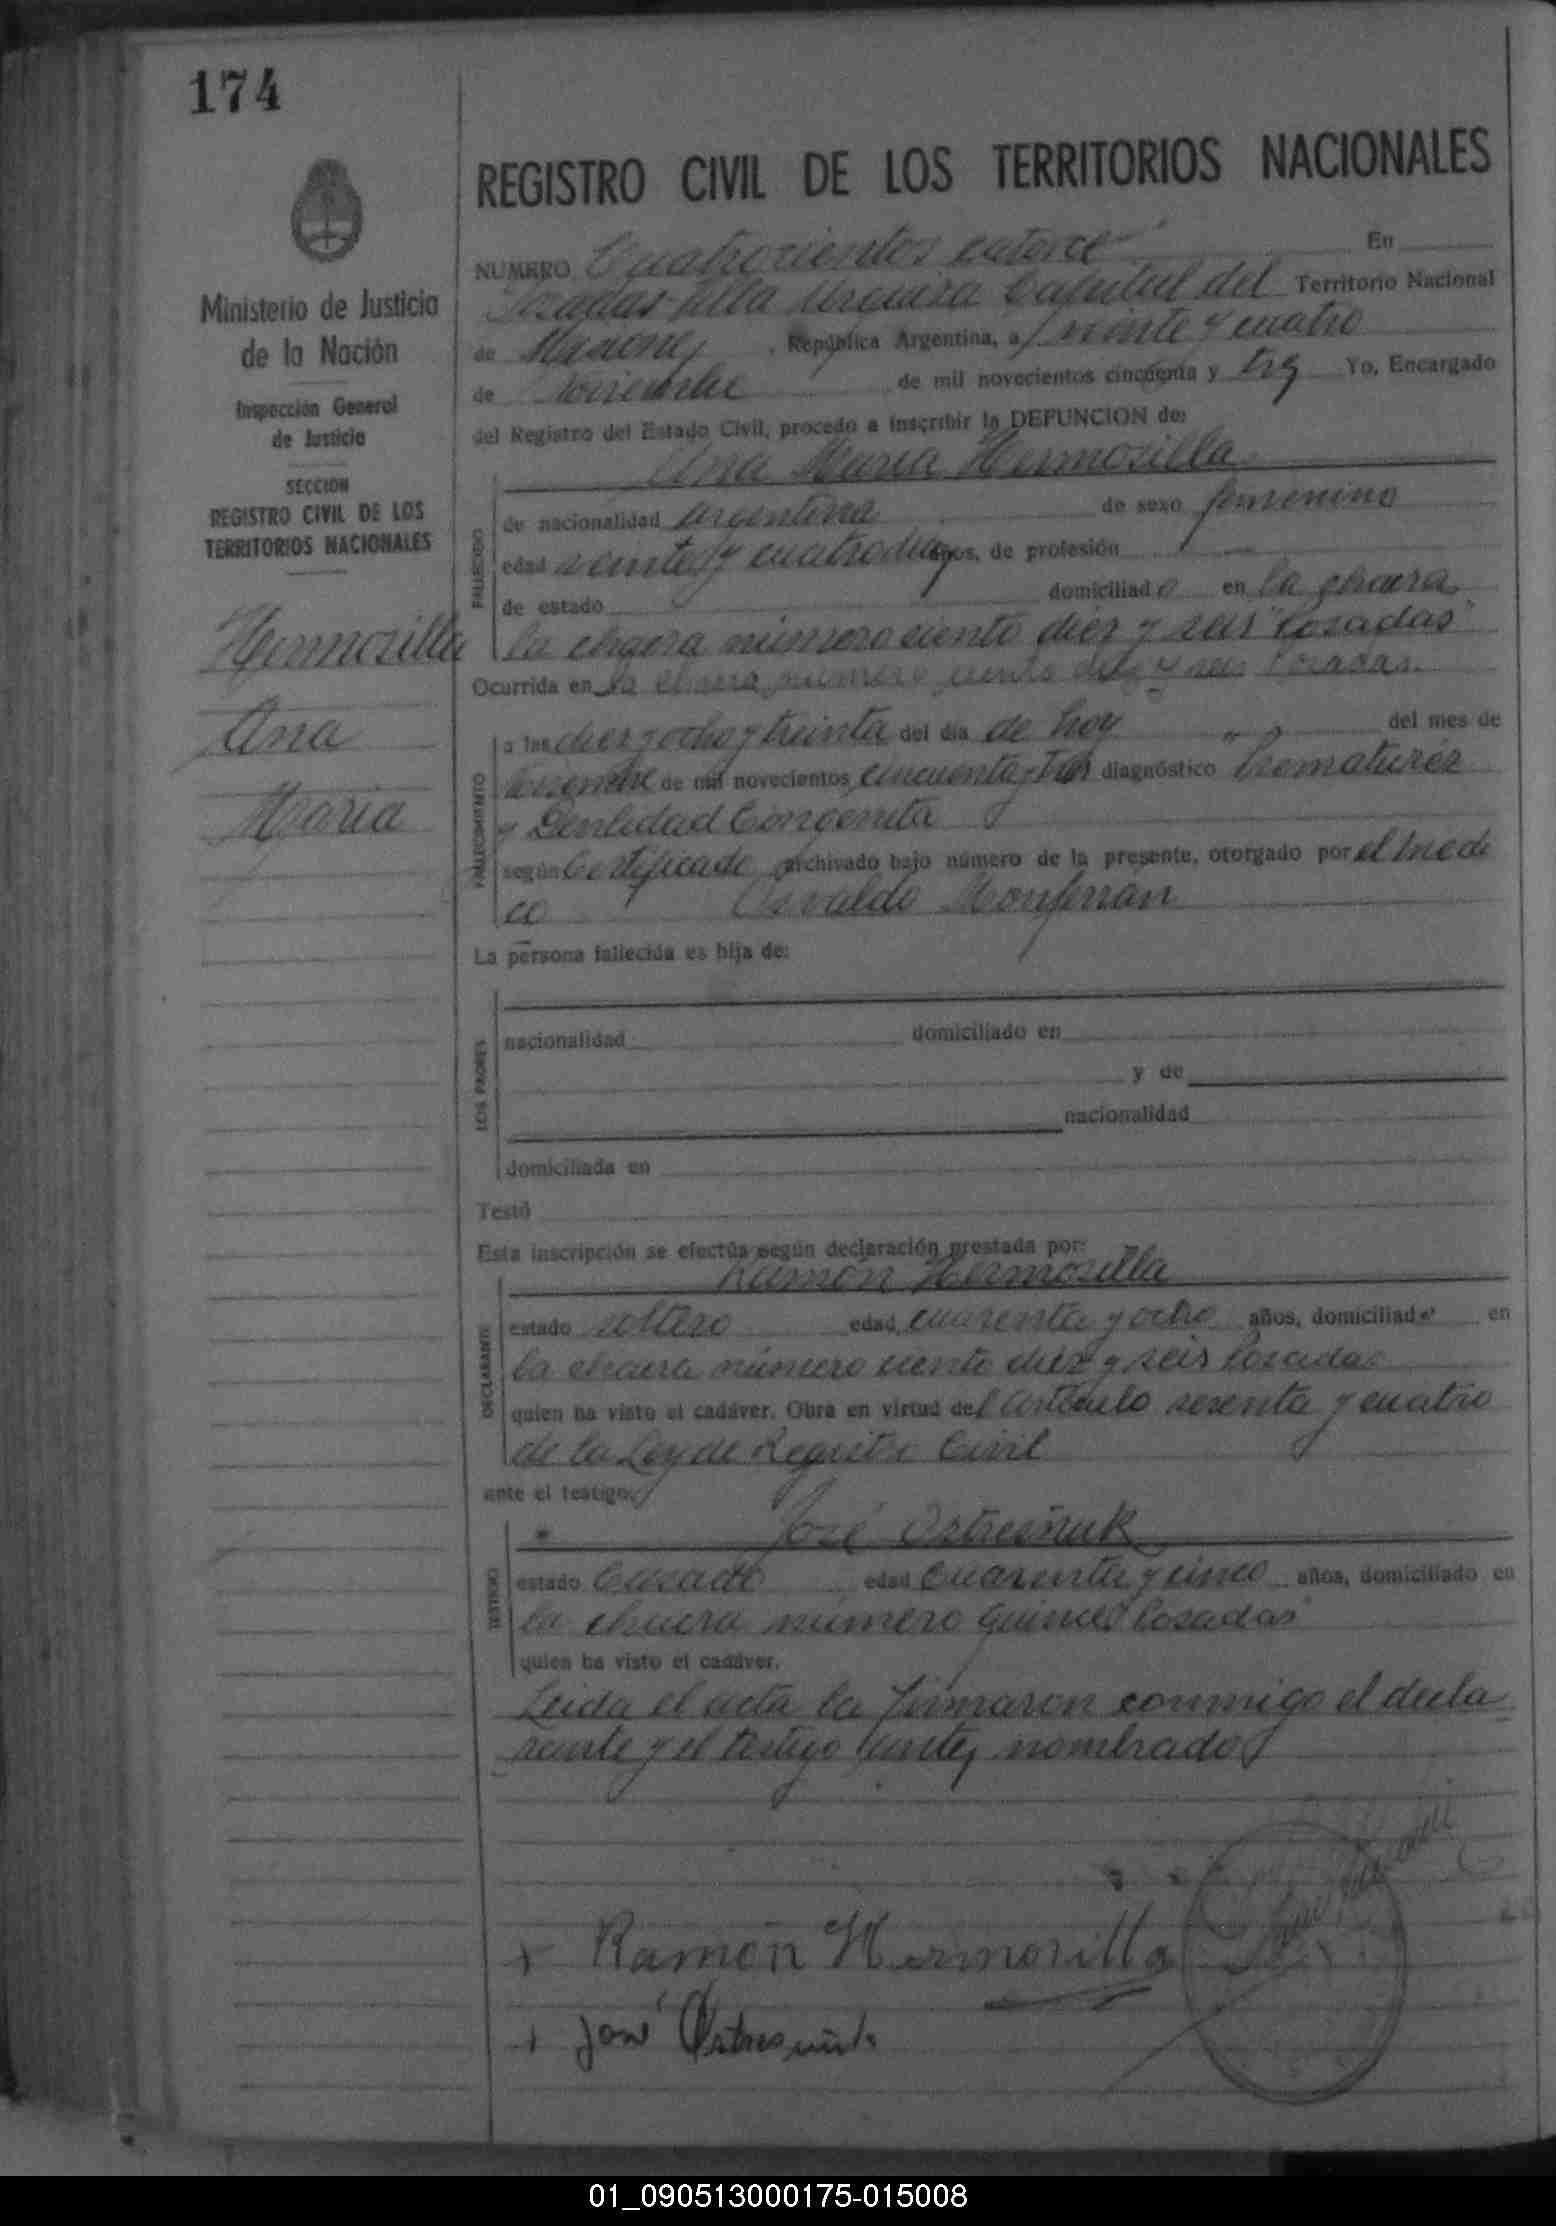 174
REGISTRO CIVIL DE LOS TERRITORIOS NACIONALES
Ministerio de Justicia
de la Nación
Inspección General
de Justicia
SECCION
REGISTRO CIVIL DE LOS
TERRITORIOS NACIONALES
Hermosilla
Ana
Maria
NUMERO Cuatrocientos catorce En
Posadas Villa Urquiza Capital del Territorio Nacional
de Misiones, República Argentina, a veinte y cuatro
de Noviembre de mil novecientos cincuenta y tres Yo, Encargado
del Registro del Estado Civil, procedo a inscribir la DEFUNCION de:
Ana Maria Hermosilla
FALLECIDO
de nacionalidad argentina de sexo femenino
edad veinte y cuatro dias años, de profesión
de estado domiciliado en la chacra
la chacra número ciento diez y seis "Posadas"
Ocurrida en la chacra número ciento diez y seis Posadas.
FALLECIMIENTO
a las diez y ocho y treinta del día de hoy del mes de
Noviembre de mil novecientos cincuenta y tres diagnóstico Prematuréz
y Devilidad Congenita
según Certificado archivado bajo número de la presente, otorgado por el medi
co Osvaldo Monferran
La persona fallecida es hija de:
LOS PADRES
nacionalidad domiciliado en
y de
nacionalidad
domiciliada en
Testó
Esta inscripción se efectúa según declaración prestada por:
Ramón Hermosilla
DECLARANTE
estado soltero edad cuarenta y ocho años, domiciliado en
la chacra número ciento diez y seis Posadas
quien ha visto el cadáver. Obra en virtud del Artículo sesenta y cuatro
de la Ley de Registro Civil
ante el testigo:
José Ostresñuk
TESTIGO
estado Casado edad cuarenta y cinco años, domiciliado en
la chacra número quince Posadas
quien ha visto el cadáver.
Leida el acta la firmaron conmigo el decla
rante y el testigo antes nombrados
+ Ramón Hermosilla
+ José
01_090513000175-015008